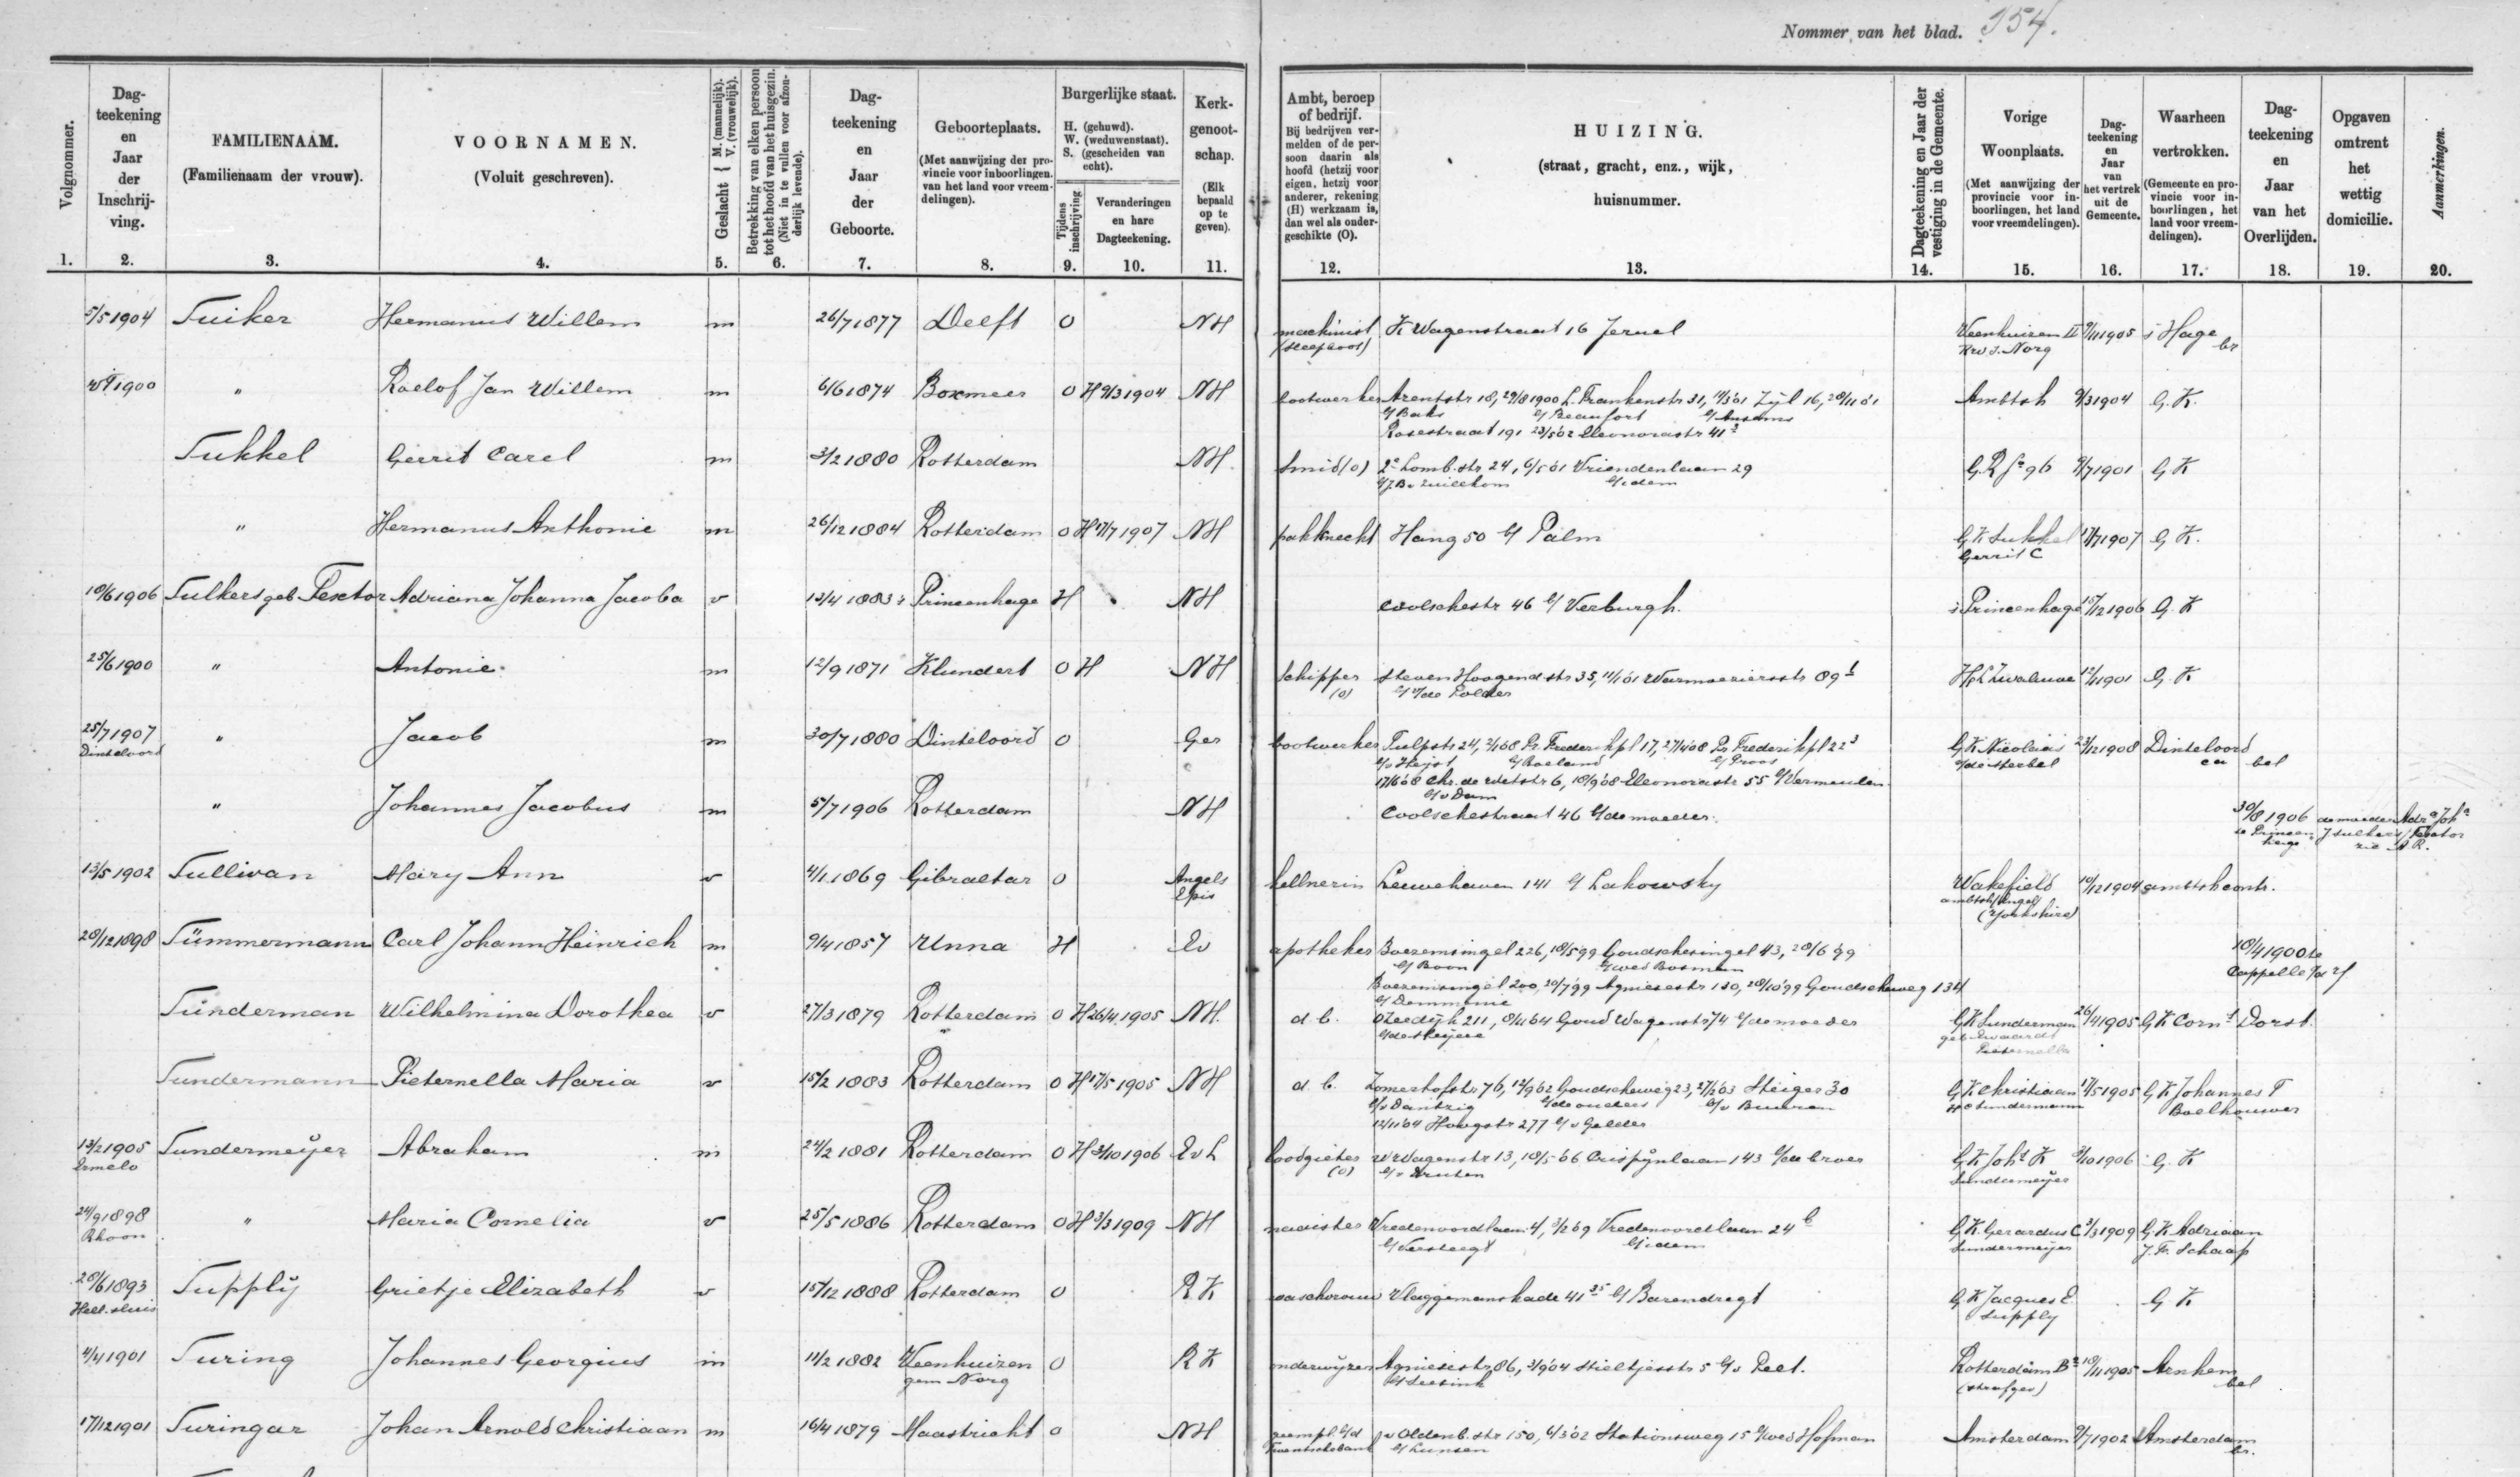 Nommer van het blad. 954.
Volgnommer.
Dag-
teekening
en
Jaar
der
Inschrij-
ving.
FAMILIENAAM.
(Familienaam der vrouw).
VOORNAMEN.
(Voluit geschreven).
Geslacht { M. (mannelijk). V. (vrouwelijk).
Betrekking van elken persoon
tot het hoofd van het huisgezin.
(Niet in te vullen voor afzon-
derlijk levende).
Dag-
teekening
en
Jaar
der
Geboorte.
Geboorteplaats.
(Met aanwijzing der pro-
vincie voor inboorlingen,
van het land voor vreem-
delingen).
Burgerlijke staat.
H. (gehuwd).
W. (weduwenstaat).
S. (gescheiden van
echt).
Tijdens
inschrijving
Veranderingen
en hare
Dagteekening.
Kerk-
genoot-
schap.
(Elk
bepaald
op te
geven).
Ambt, beroep
of bedrijf.
Bij bedrijven ver-
melden of de per-
soon daarin als
hoofd (hetzij voor
eigen, hetzij voor
anderer, rekening
(H) werkzaam is,
dan wel als onder-
geschikte (O).
HUIZING.
(straat, gracht, enz., wijk,
huisnummer.
Dagteekening en Jaar der
vestiging in de Gemeente.
Vorige
Woonplaats.
(Met aanwijzing der
provincie voor in-
boorlingen, het land
voor vreemdelingen).
Dag-
teekening
en
Jaar
van
het vertrek
uit de
Gemeente.
Waarheen
vertrokken.
(Gemeente en pro-
vincie voor in-
boorlingen, het
land voor vreem-
delingen).
Dag-
teekening
en
Jaar
van het
Overlijden.
Opgaven
omtrent
het
wettig
domicilie.
Aanmerkingen.
1. 2. 3. 4. 5. 6. 7. 8. 9. 10. 11. 12. 13. 14. 15. 16. 17. 18. 19. 20.
5/5 1904 Suiker Hermanus Willem m 26/7 1877 Delft O NH machinist K Wagenstraat 16 Jeruel Veenhuizen II 9/11 1905 s Hage
(sleepboot) Norg br
1900 " Roelof Jan Willem m 6/6 1874 Boxmeer O H 9/3 1904 NH bootwerker Arentstr 18, 29/8 1900 L. Frankenstr 31, Zijl 16, 28/11 01 Ambtsh 9/3 1904 G. K.
b/ Baks b/ Beaufort
Rosestraat 191 23/5 02 Eleonorastr 41
Sukkel Gerrit Carel m 3/2 1880 Rotterdam NH. Smid (o) 2e Lomb. str 24, 6/5 01 Vriendenlaan 29 9/7 1901 G K
b/ idem
" Hermanus Anthonie m 26/12 1884 Rotterdam O H 17/7 1907 NH pakknecht Hang 50 b/ Palm G K Sukkel 17/7 1907 G K.
Gerrit C
18/6 1906 Sulkers geb Textor Adriana Johanna Jacoba v 13/4 1883 Princenhage H NH Coolschestr 46 b/ Verburgh. Princenhage 15/12 1906 G. K
25/6 1900 " Antonie. m 12/9 1871 Klundert O H NH Schipper Steven Hoogend str 35, 11/1 01 Warmoeziersstr 89 Zwaluwe 12/4 1901 G. K
(o) Polder
25/7 1907 " Jacob m 30/7 1880 Dinteloord O Ger bootwerker Tulpstr 24, 2/1 08 Pr Frederikpl 17, 27/4 08 Pr Frederikpl 22 3 G K Nicolaas 23/12 1908 Dinteloord
Dinteloord b/v Heyst b/ Roeland b/ Proos en bel
17/6 08 Chr. de Wetstr 6, 18/9 08 Eleonorastr 55 b/ Vermeulen
b/v Dam
" Johannes Jacobus m 5/7 1906 Rotterdam NH Coolschestraat 46 b/ de moeder. 30/8 1906 de moeder Adra Joha
te Princen- J Sulkers / Textor
hage zie A. R.
13/5 1902 Sullivan Mary Ann v 4/1 1869 Gibraltar O Angels hellnerin Leuvehaven 141 b/ Lakowsky Wakefield 10/12 1904 ambtsh contr.
Epis (Yorkshire)
28/12 1898 Sümmermann Carl Johann Heinrich m 9/4 1857 Unna H Ev apotheker Boezemsingel 226, 18/5 99 Goudschesingel 43, 28/6 99 18/4 1900 te
b/ Boon b/ wed Bosman Cappelle a/d Y
Boezemsingel 200, 20/7 99 Agniesestr 130, 28/10 99 Goudscheweg 134
Sünderman Wilhelmina Dorothea v 27/3 1879 Rotterdam O H 26/4 1905 NH. d. b. OZeedijk 211, Goud Wagenstr 74 b/ de moeder G K Sunderman 26/4 1905 G K Corns Dorst.
Sundermann Pieternella Maria v 15/2 1883 Rotterdam O H 17/5 1905 NH d. b. Zomerhofstr 76, 12/9 02 Goudscheweg 23, 27/2 03 Steiger 30 G K Christiaan 17/5 1905 G K Johannes T
b/v Dantzig b/ de ouders b/v Buuren H C Sundermann Boelhouwer
12/11 04 Hoogstr 277 b/v Gelder
13/2 1905 Sundermeijer Abraham m 24/2 1881 Rotterdam O H 3/10 1906 Ev L loodgieter W Wagenstr 13, 18/5 06 Crispijnlaan 143 b/ de broer G K Johs K 3/10 1906 G. K
Ermelo (o) Sundermeijer
24/9 1898 " Maria Cornelia v 25/5 1886 Rotterdam O H 3/3 1909 NH naaister Vredenoordlaan 4, 3/2 09 Vredenoordlaan 24 b G K Gerardus C 3/3 1909 G. K Adriaan
Rhoon b/ Versteegt b/ idem Sundermeijer J. F. Schaap
28/6 1893 Supply Grietje Elizabeth v 15/12 1888 Rotterdam O R K waschvrouw Vlaggemanskade 41 b/ Barendregt G K Jacques E G K
Hell. sluis Supply
4/4 1901 Suring Johannes Georgius m 11/2 1882 Veenhuizen O R K onderwijzer Agniesestr 86, 3/9 04 Stieltjesstr 5 b/v Peel. Rotterdam 18/11 1905 Arnhem
gem Norg (strafgev) bel
17/12 1901 Suringar Johan Arnold Christiaan m 16/4 1879 Maastricht O NH J v Oldenb. str 150, 6/3 02 Stationsweg 15 b/ wed Hofman Amsterdam 9/7 1902 Amsterdam
b/ Lunsen br.